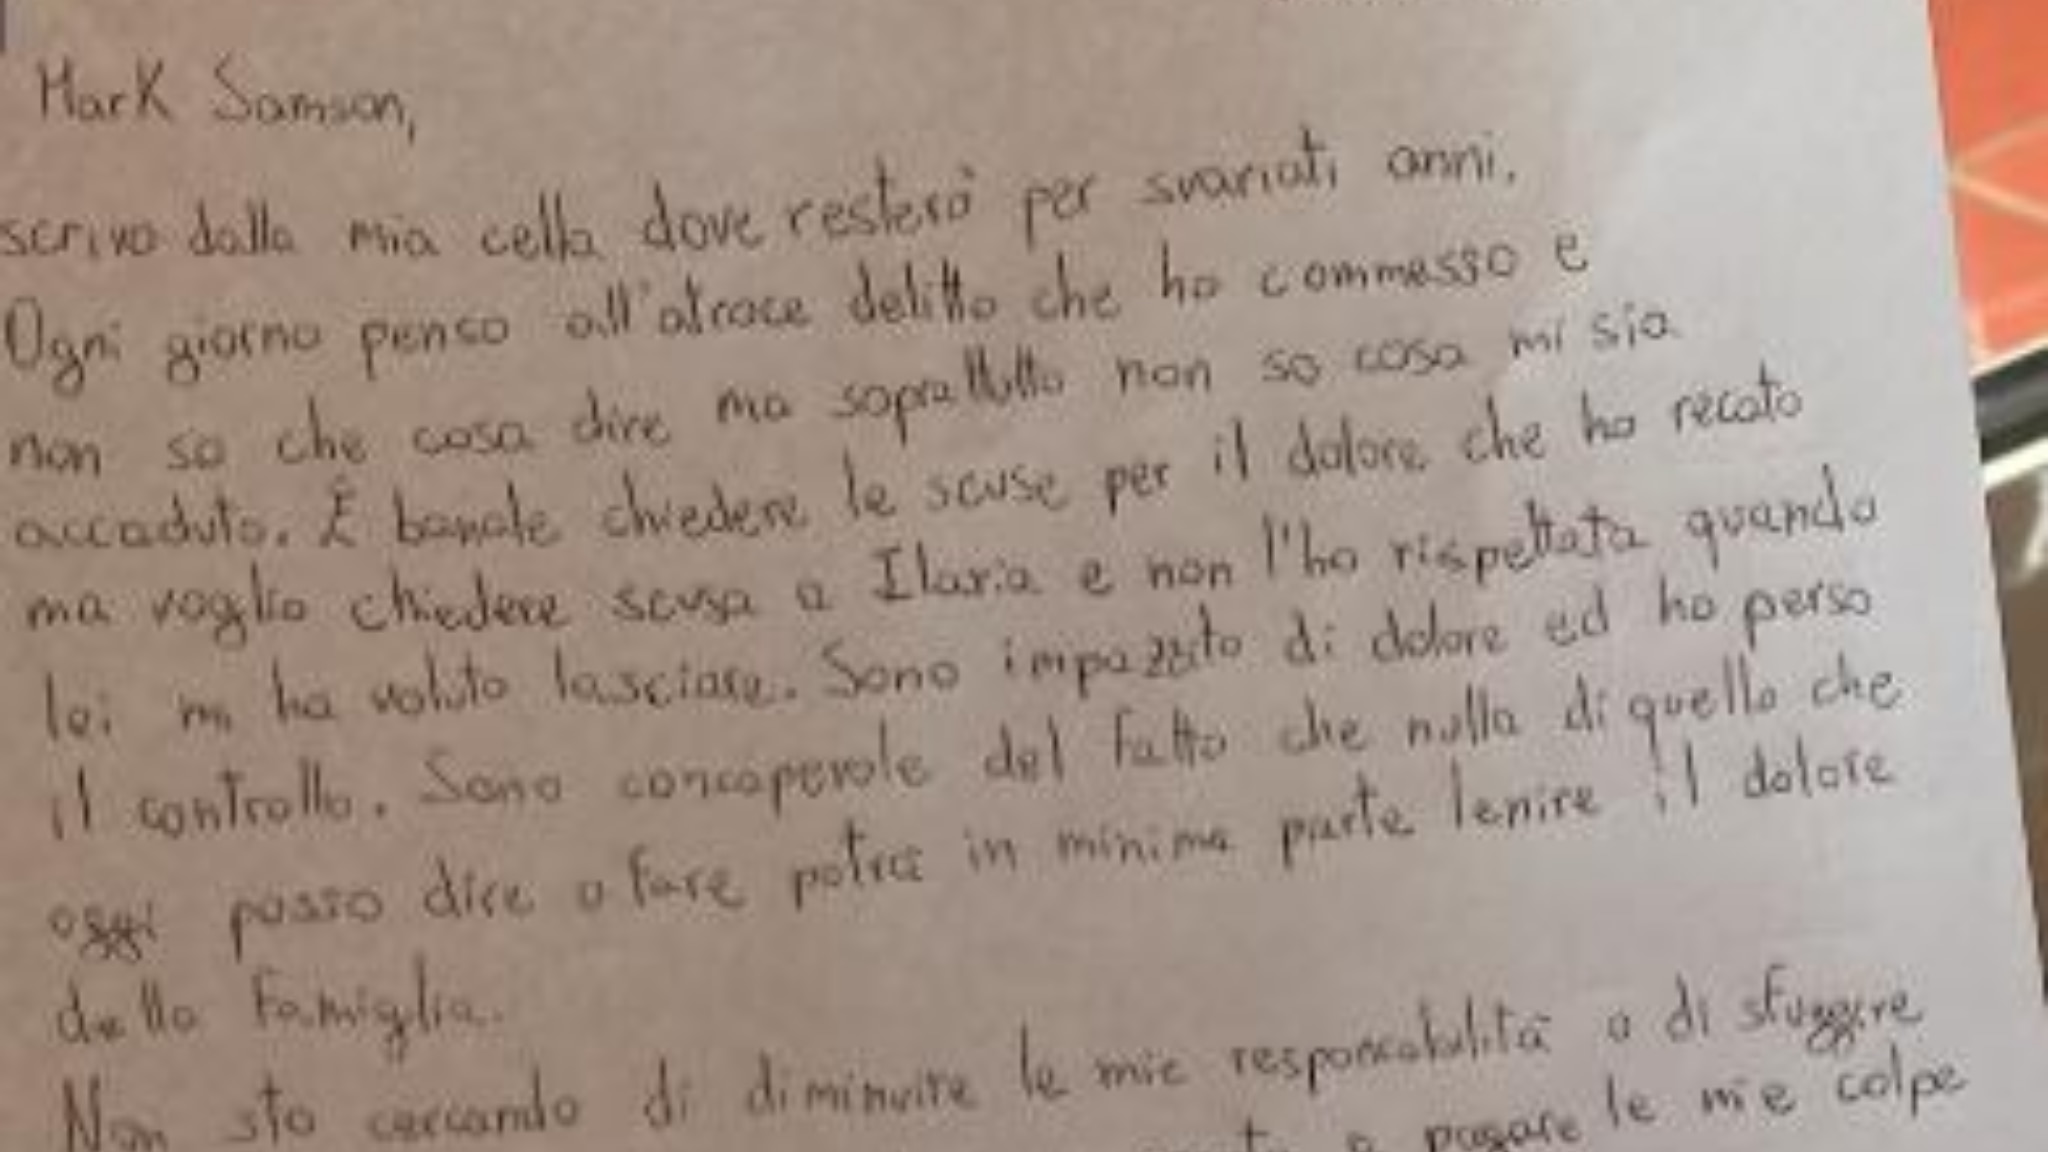 Mark Samson,
scrivo dalla mia cella dove resterò per svariati anni.
Ogni giorno penso all'atroce delitto che ho commesso e
non so che cosa dire ma soprattutto non so cosa mi sia
accaduto. È banale chiedere le scuse per il dolore che ho recato
ma voglio chiedere scusa a Ilaria e non l'ho rispettata quando
lei mi ha voluto lasciare. Sono impazzito di dolore ed ho perso
il controllo. Sono consapevole del fatto che nulla di quello che
oggi posso dire o fare potrà in minima parte lenire il dolore
della famiglia.
Non sto cercando di diminuire le mie responsabilità o di sfuggire
a pagare le mie colpe